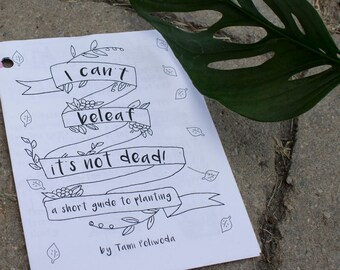 I can't
beleaf
it's not dead!
a short guide to planting
by Tami Poliwoda